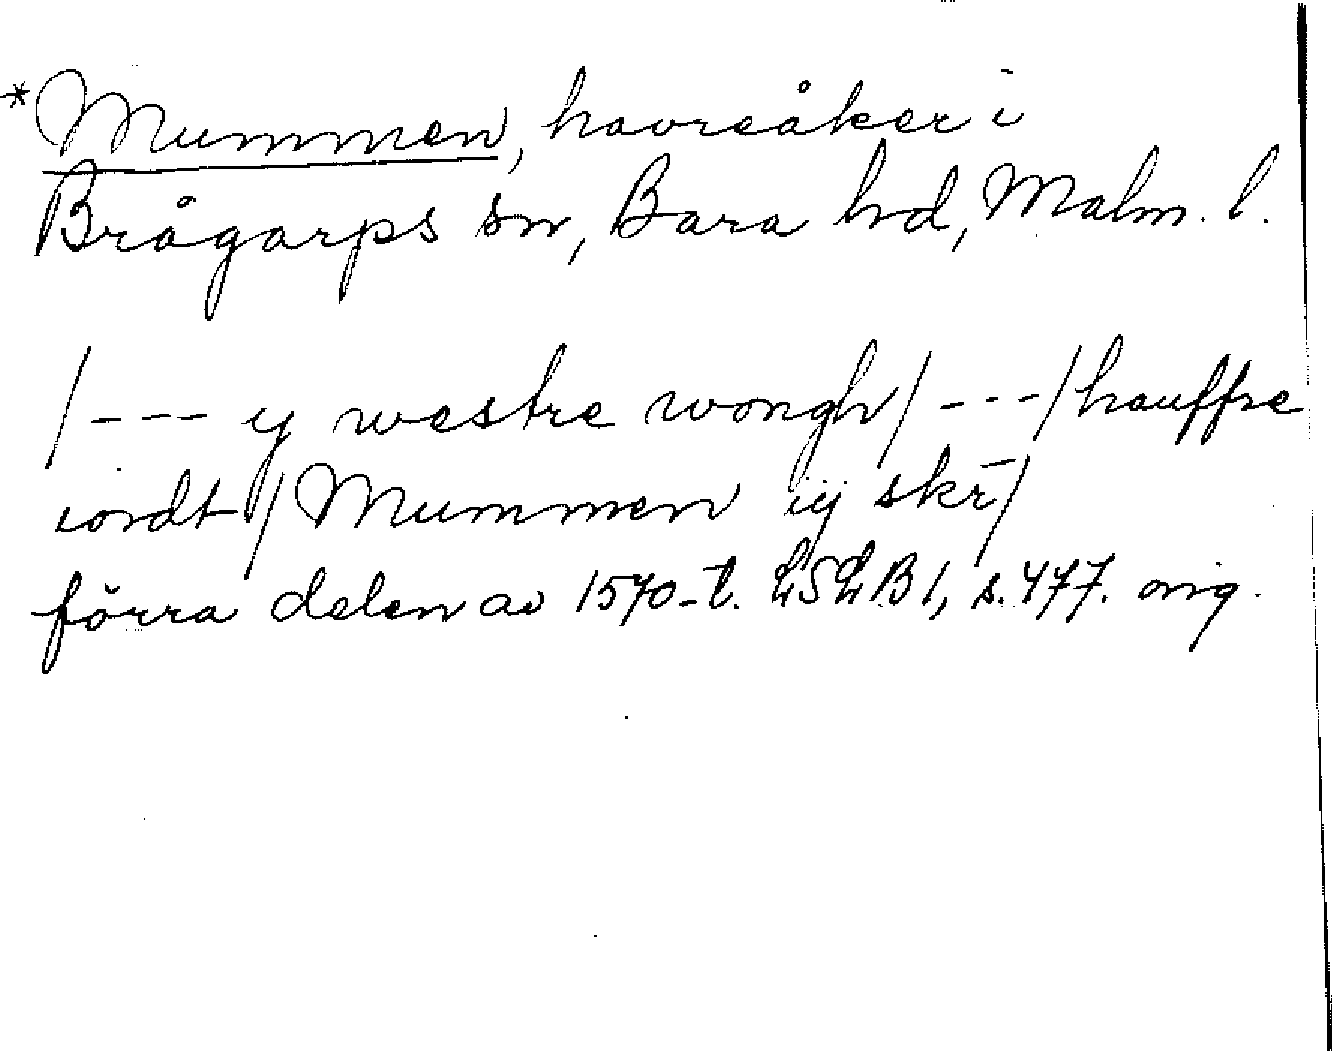 *Mummen, havreåker i
Brågarps sn, Bara hd, Malm. l.
/--- y westre wongh/ ---/ hauffre
iordt / Mummen iij skr̄/
förra delen av 1570-t. LSLB 1, s. 477. orig.